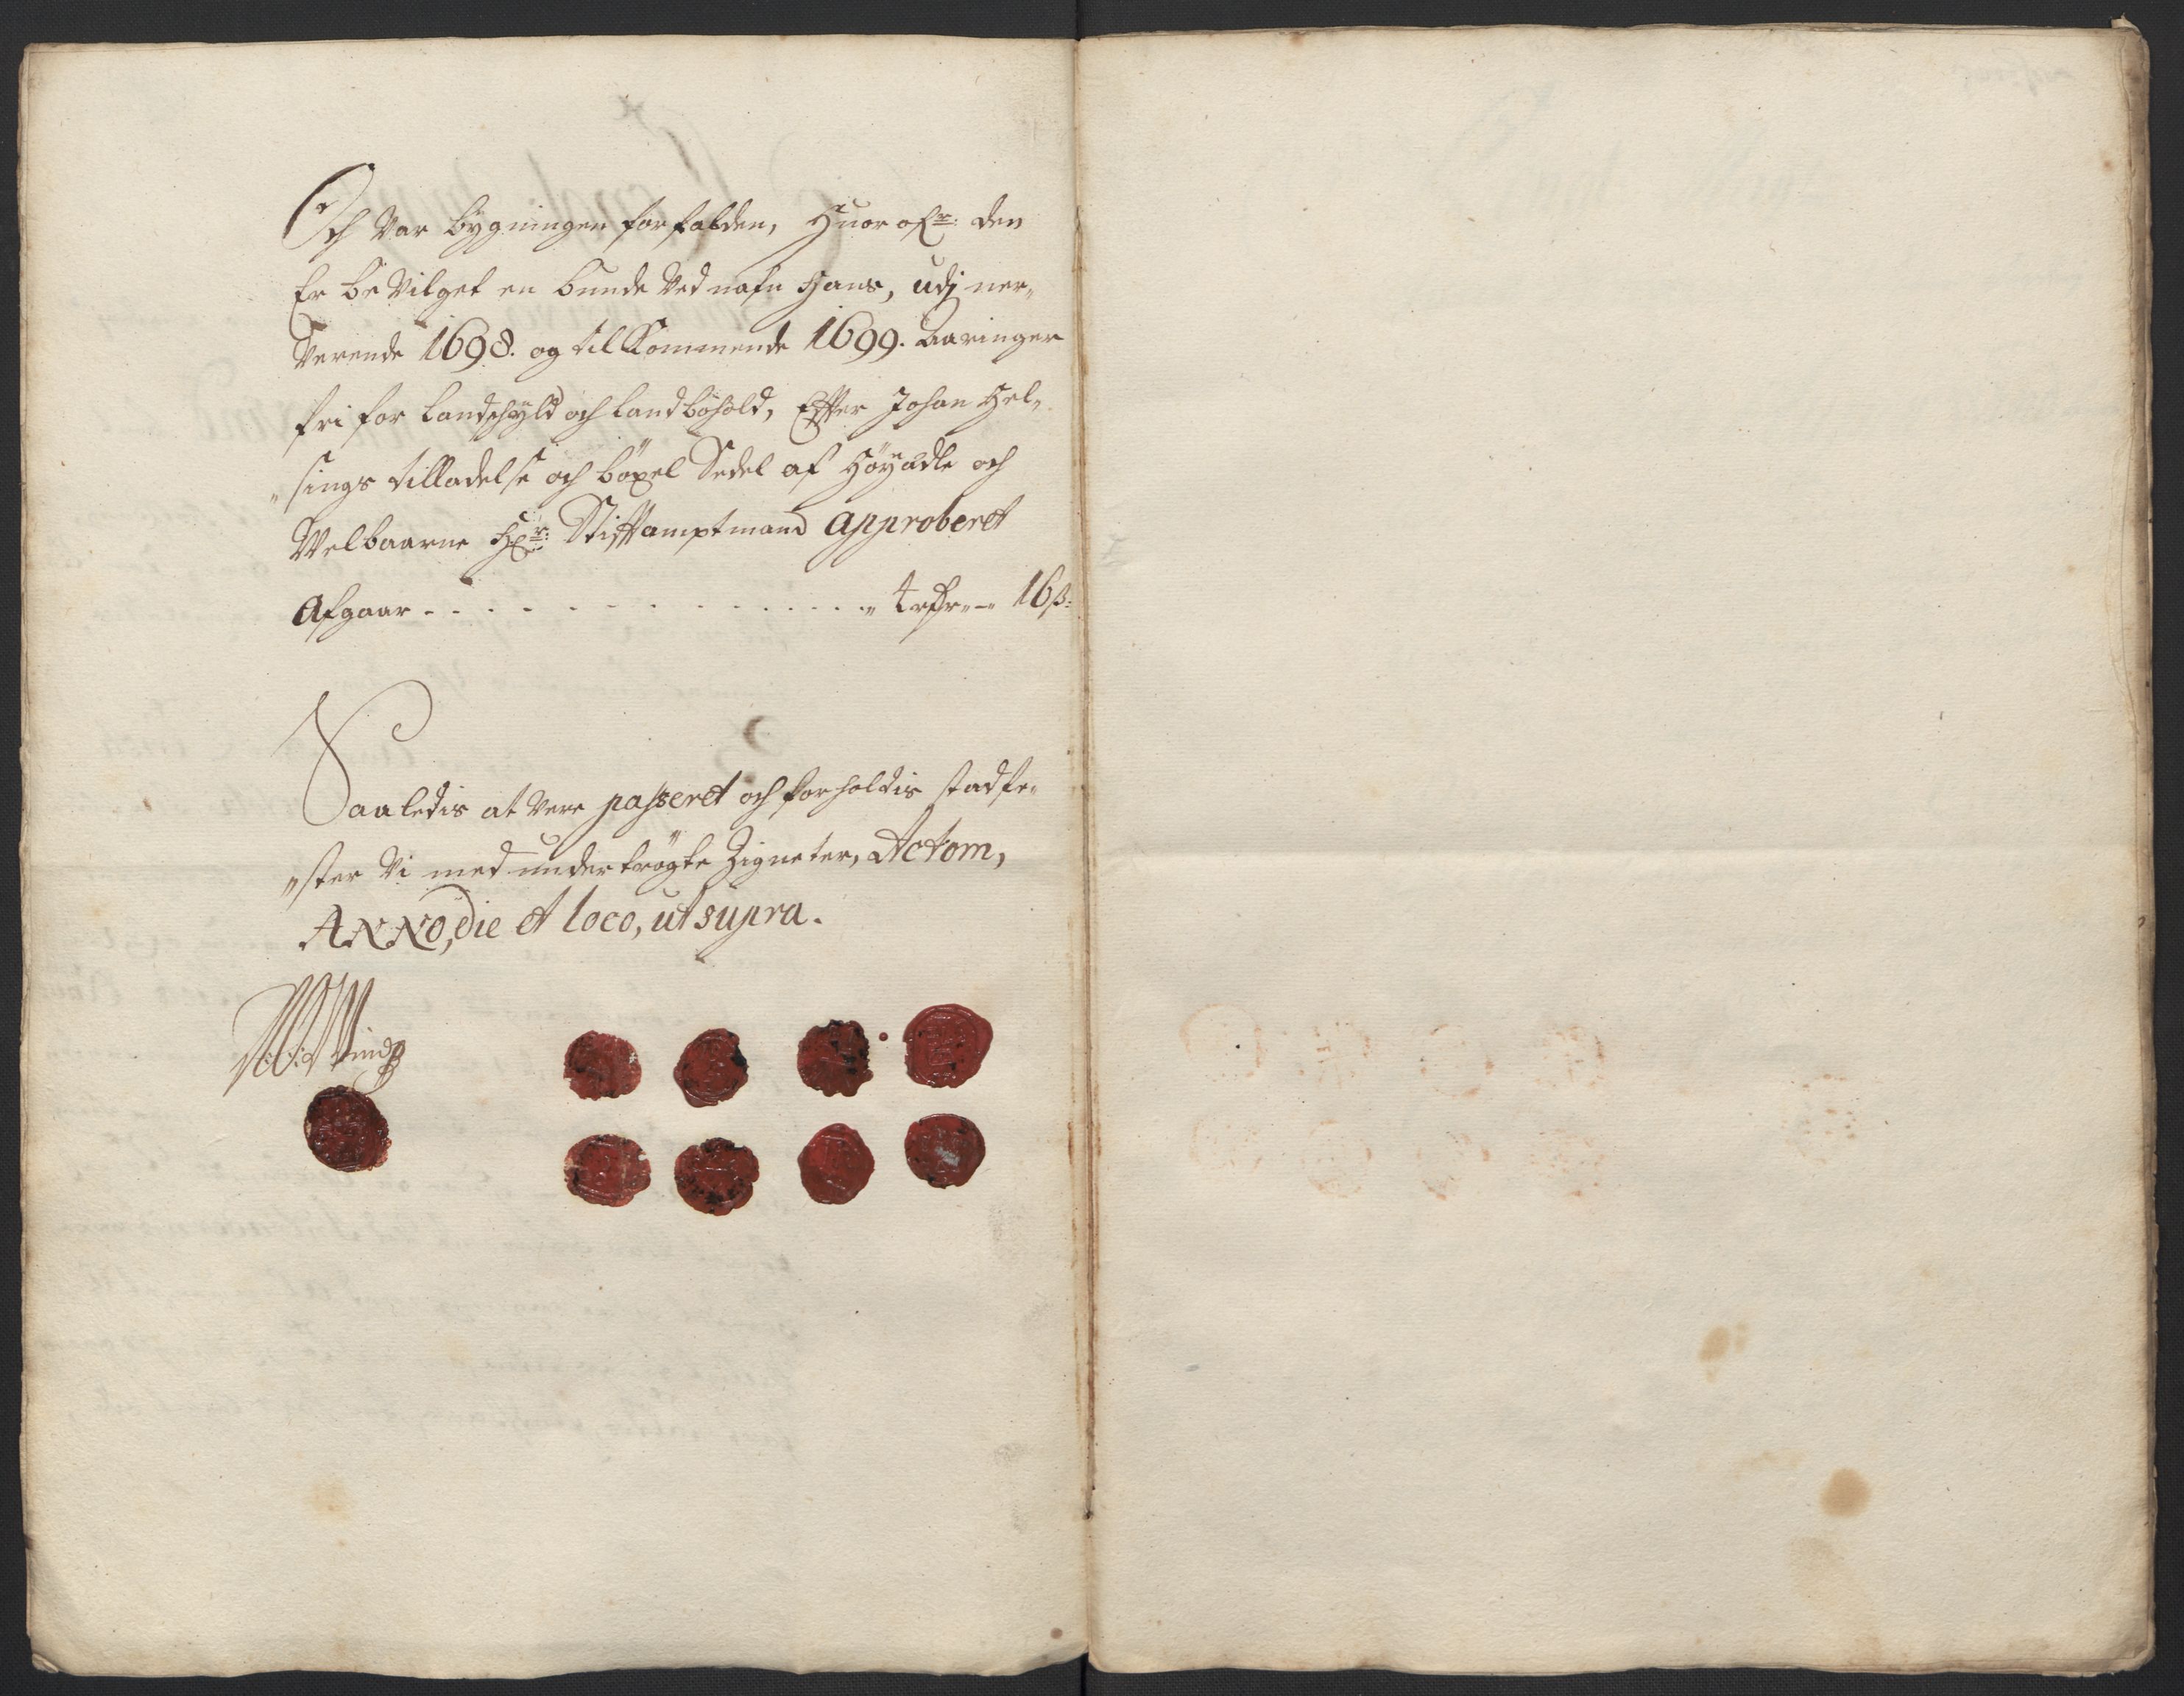 Och var bygningen forfalden, Huor ofr: den
Er be Vilget en bunde Ved nafn Hans, udj ner„
Verende 1698. og tilkommende 1699. Aaringer
fri for Landschyld och Landbohold, Efter Johan Hel„
„sings tilladelse och böxel Sedel af Höyædle och
Welbaarne Hr: Stiftamptmand approberet
Afgaar . . . . . . . . . . . . . . . „ 16ß:
Saaledis at Vere passeret och forholdis stadfe„
„ster Vi med undertrögte Zigneter, Actom,
ANNO, die et loco, ut supra.